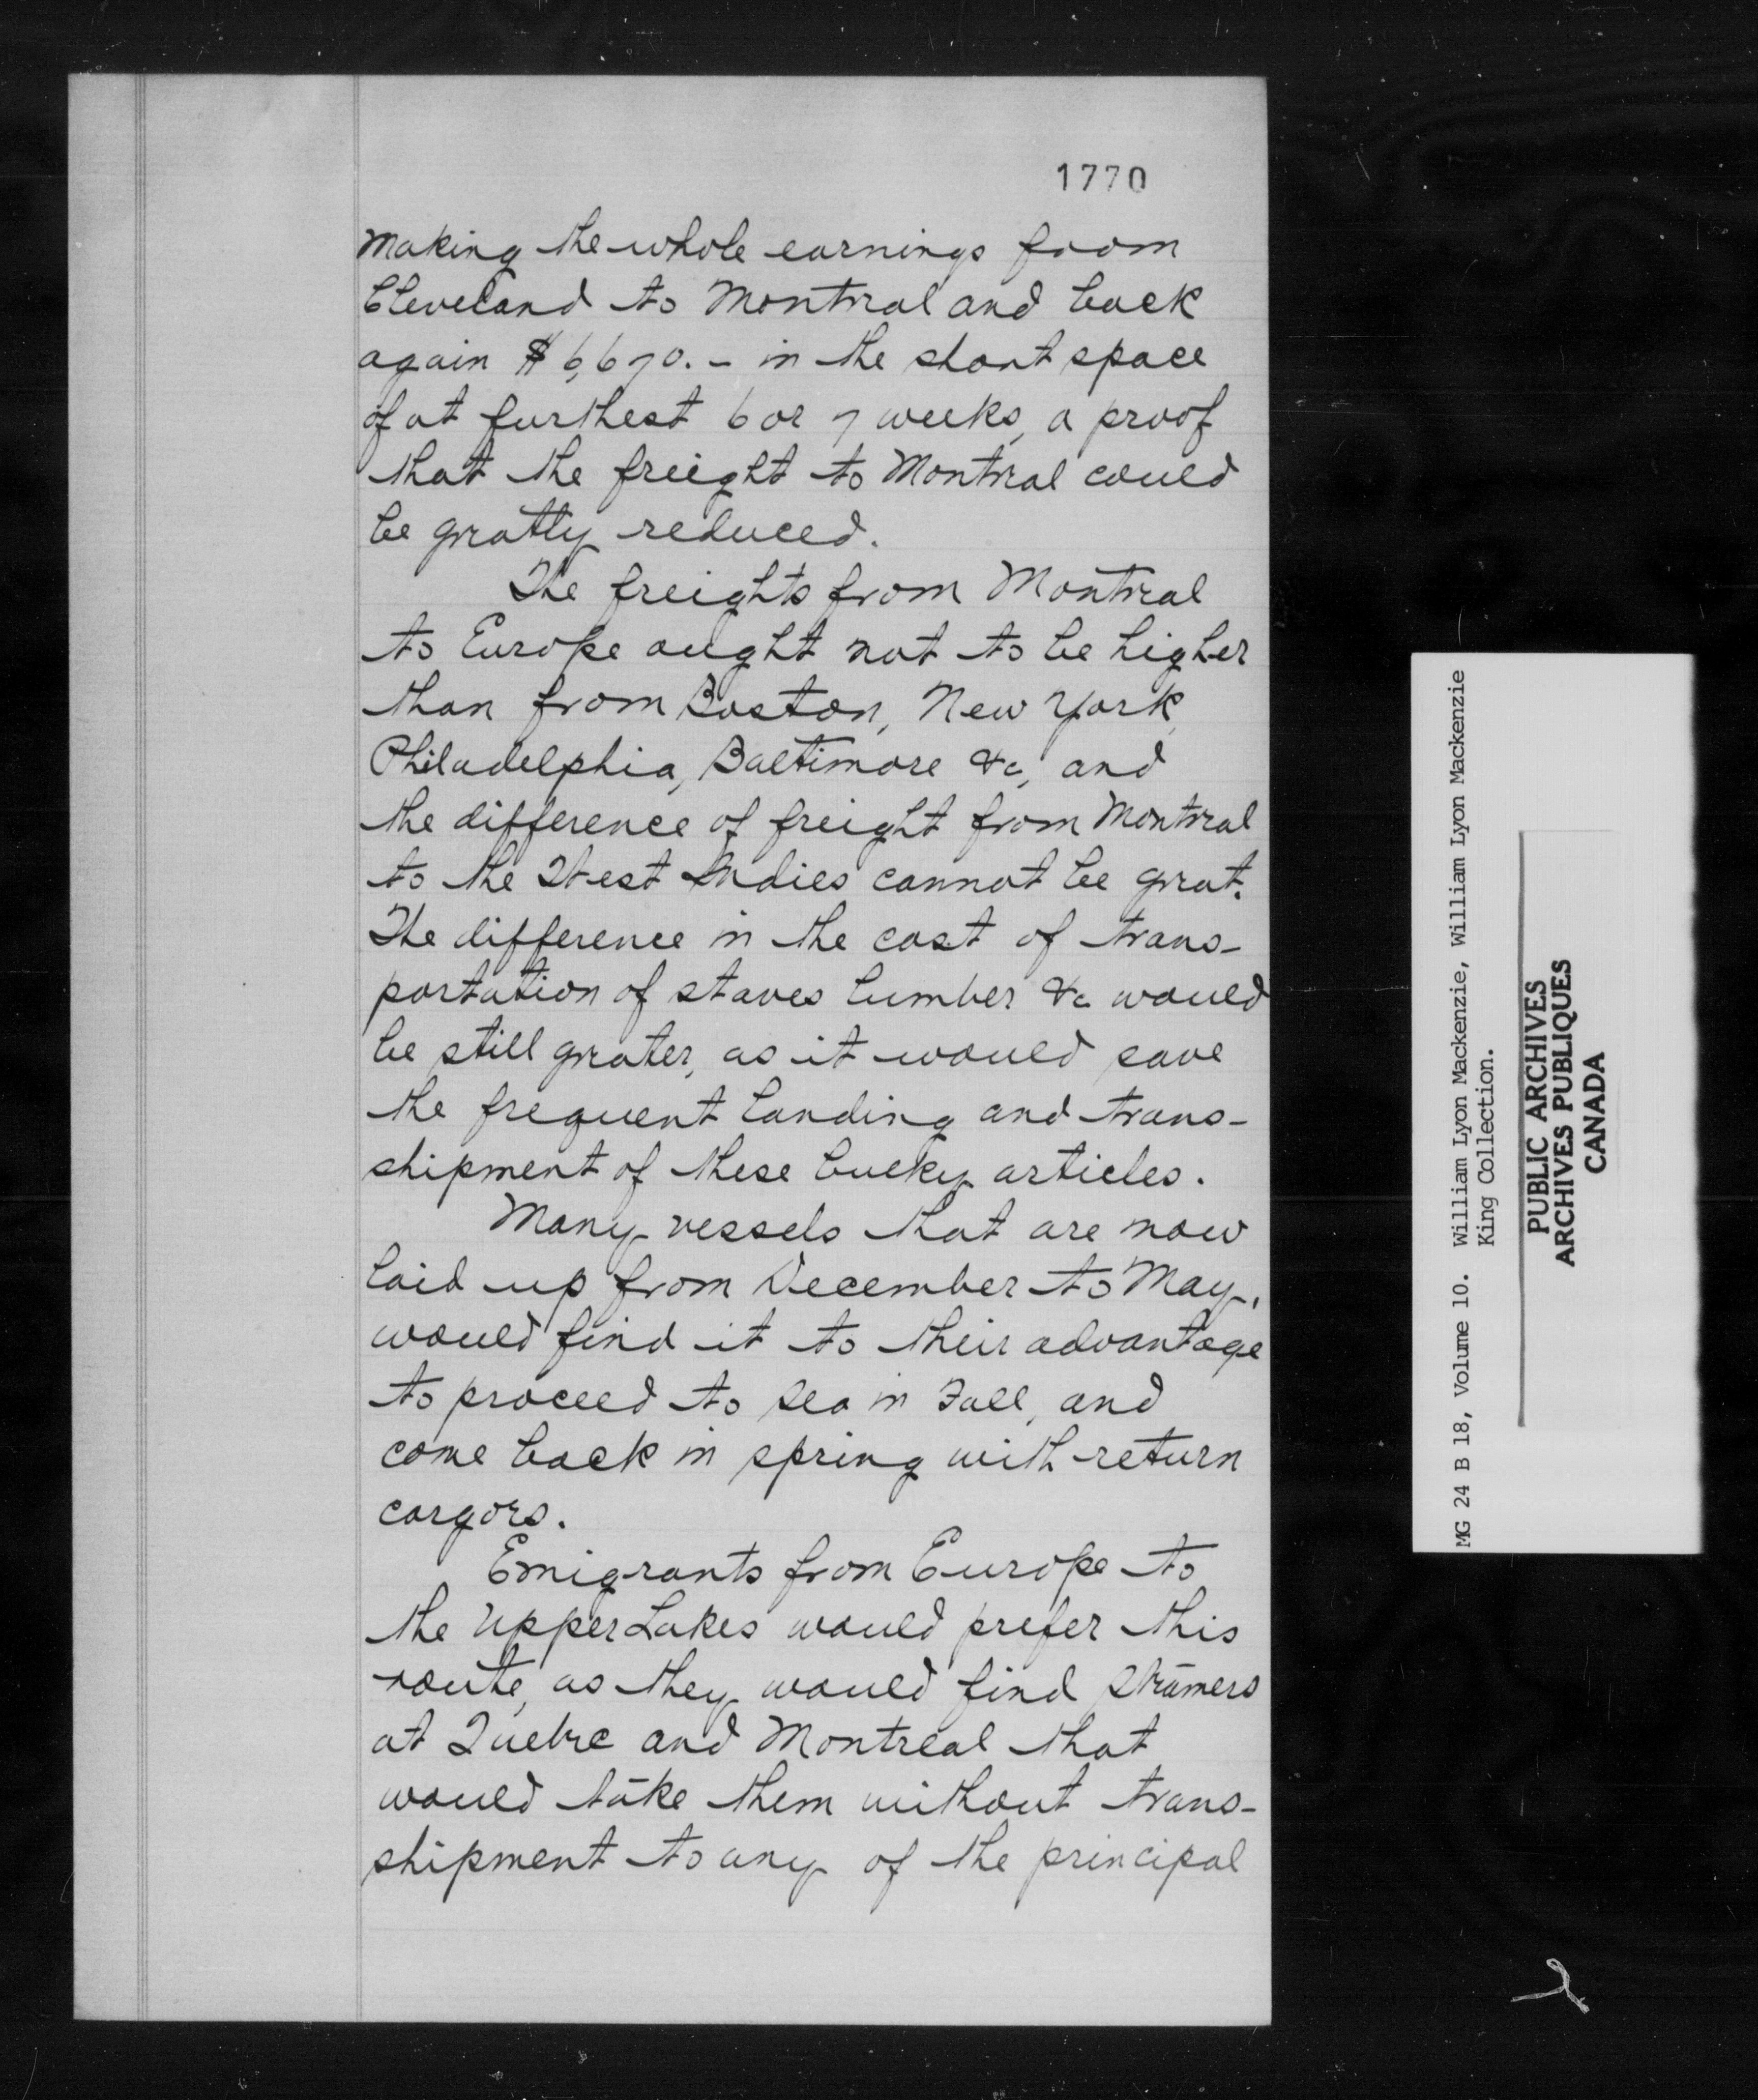 1770
making the whole earnings from
Cleveland to Montreal and back
again $6,670.- in the short space
of at furthest 6 or 7 weeks, a proof
that the freight to Montreal could
be greatly reduced.
The freights from Montreal
to Europe ought not to be higher
than from Boston, New York,
Philadelphia, Baltimore &c, and
the difference of freight from Montreal
to the West Indies cannot be great.
The difference in the cost of trans-
portation of staves lumber &c would
be still greater, as it would save
the frequent landing and trans-
shipment of these bulky articles.
Many vessels that are now
laid up from December to May,
would find it to their advantage
to proceed to sea in Fall, and
come back in spring with return
cargoes.
Emigrants from Europe to
the Upper Lakes would prefer this
route, as they would find steamers
at Quebec and Montreal that
would take them without trans-
shipment to any of the principal
MG 24 B 18, Volume 10. William Lyon Mackenzie, William Lyon Mackenzie
King Collection.
PUBLIC ARCHIVES
ARCHIVES PUBLIQUES
CANADA